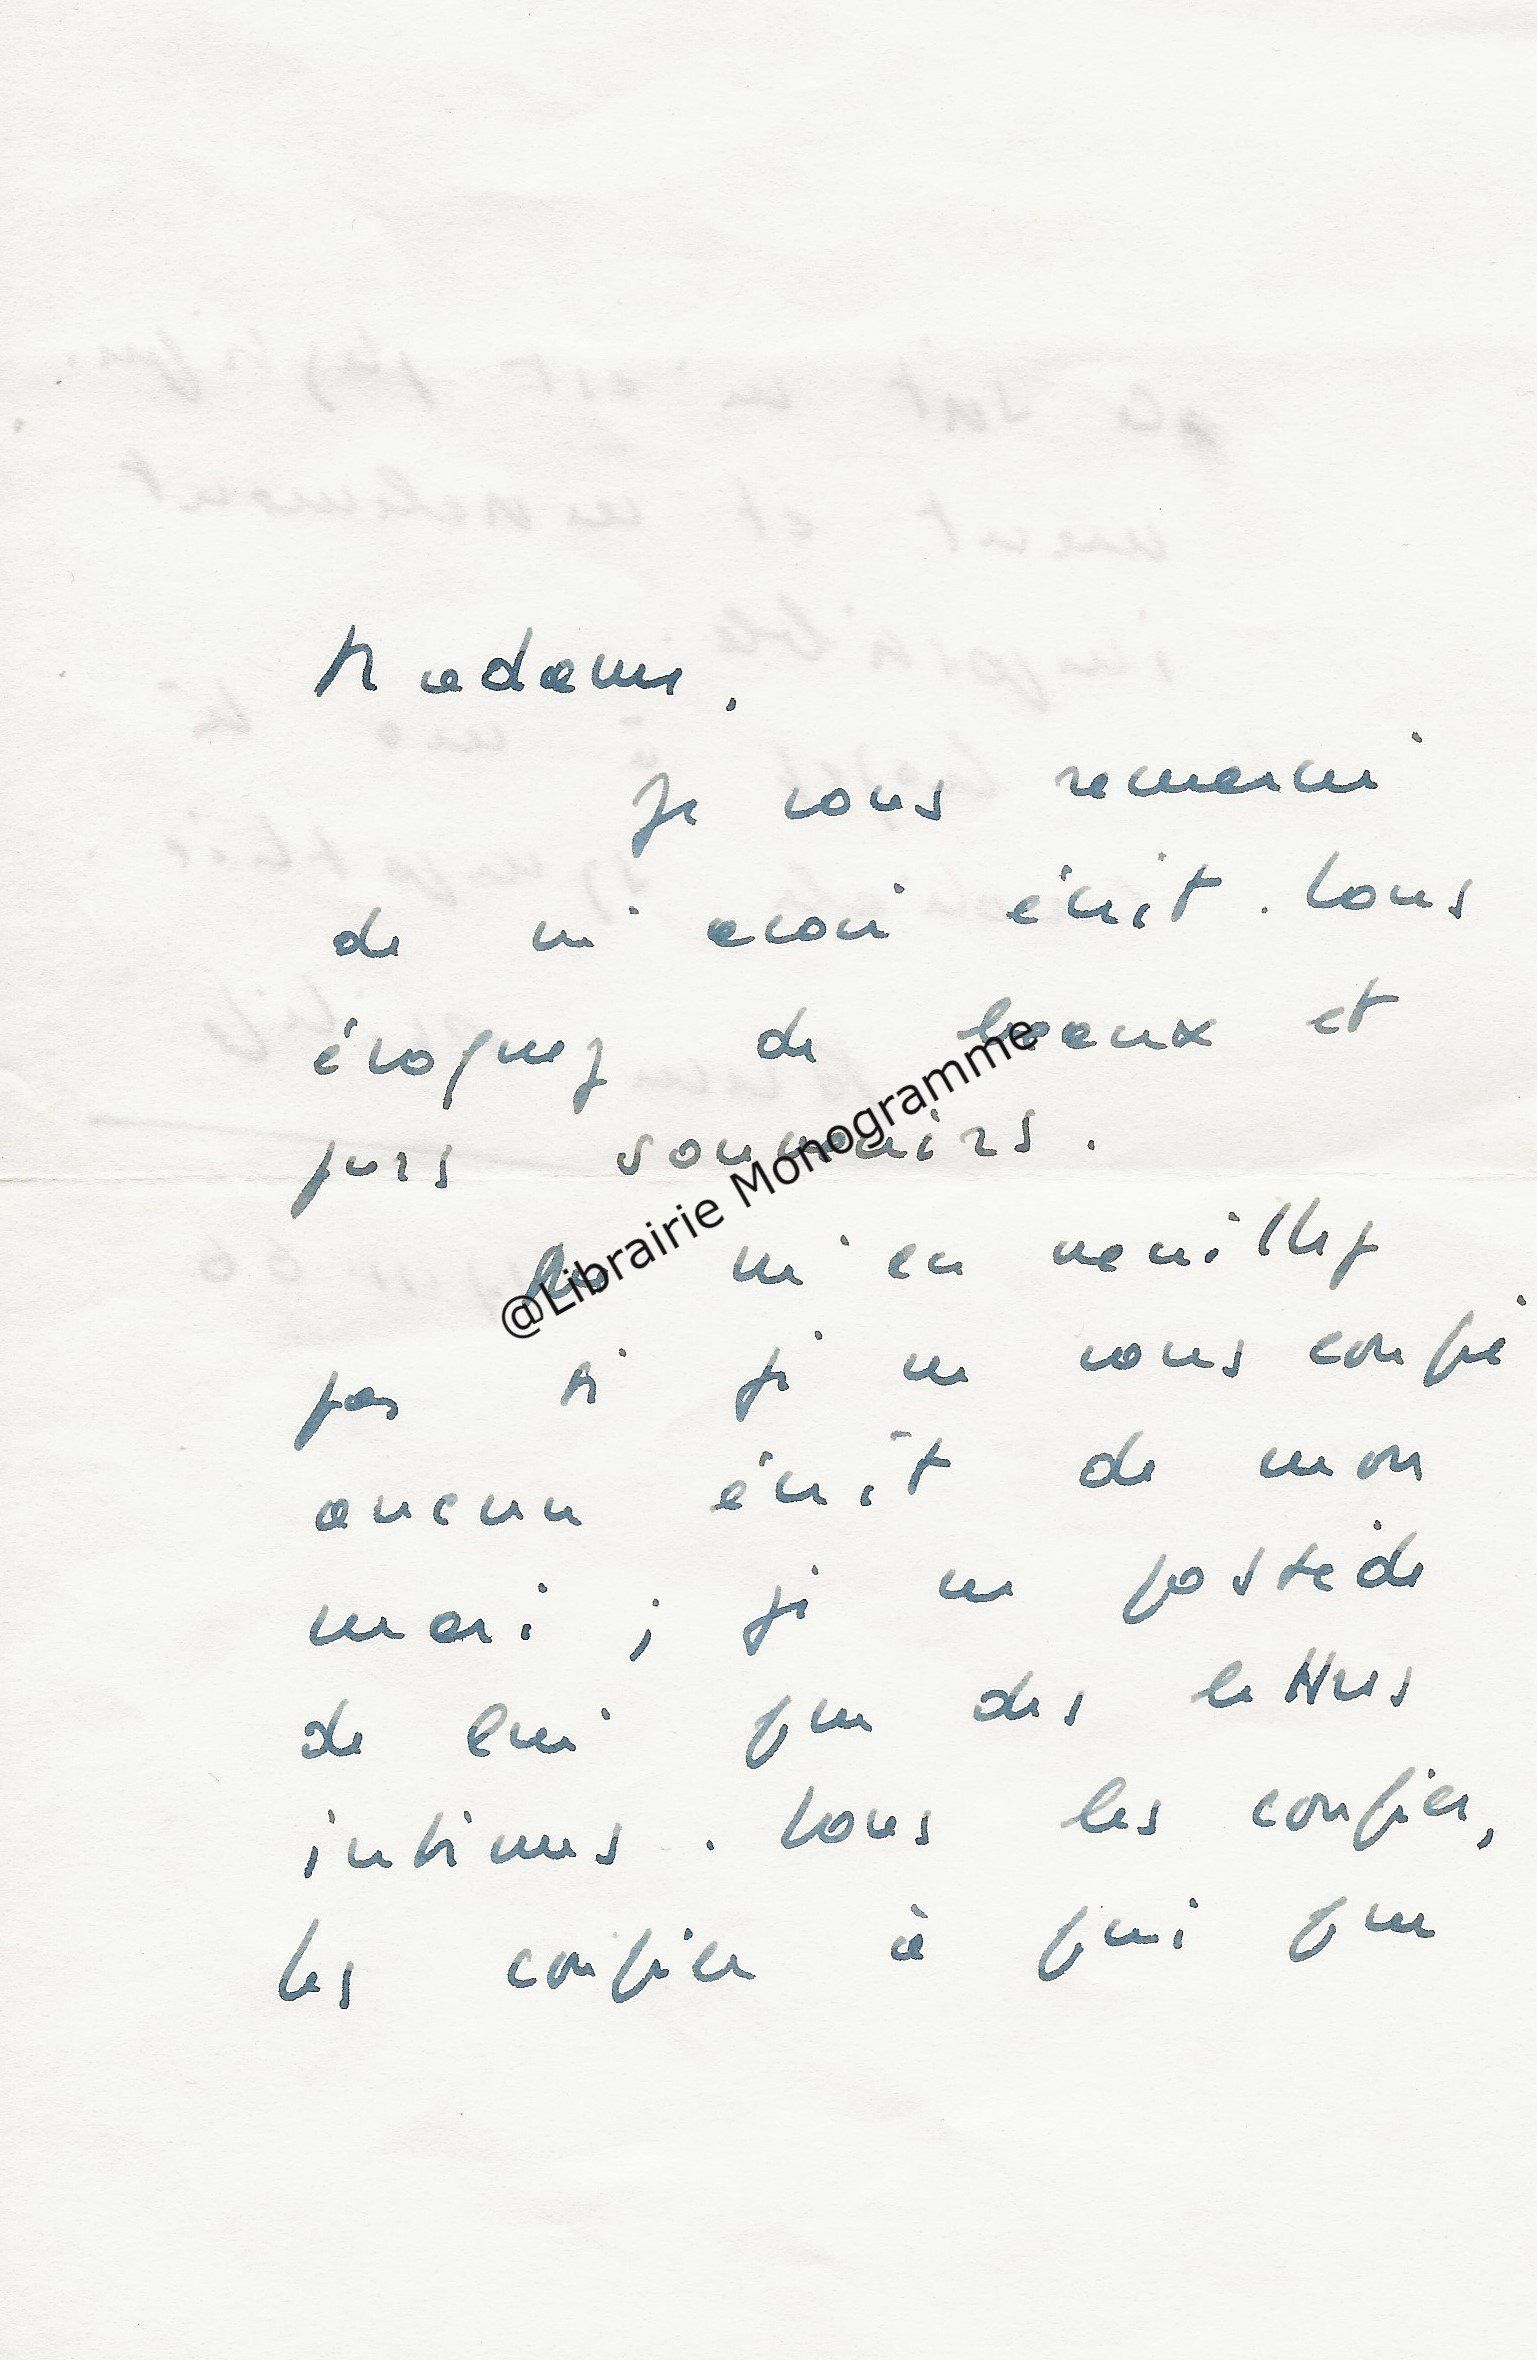 Madame,
Je vous remercie
de m'avoir écrit. Vous
évoquez de beaux et
purs souvenirs.
Ne m'en veuillez
pas si je ne vous confie
aucun écrit de mon
mari ; je ne possède
de lui que des lettres
intimes. Vous les confier,
les confier à qui que
@Librairie Monogramme